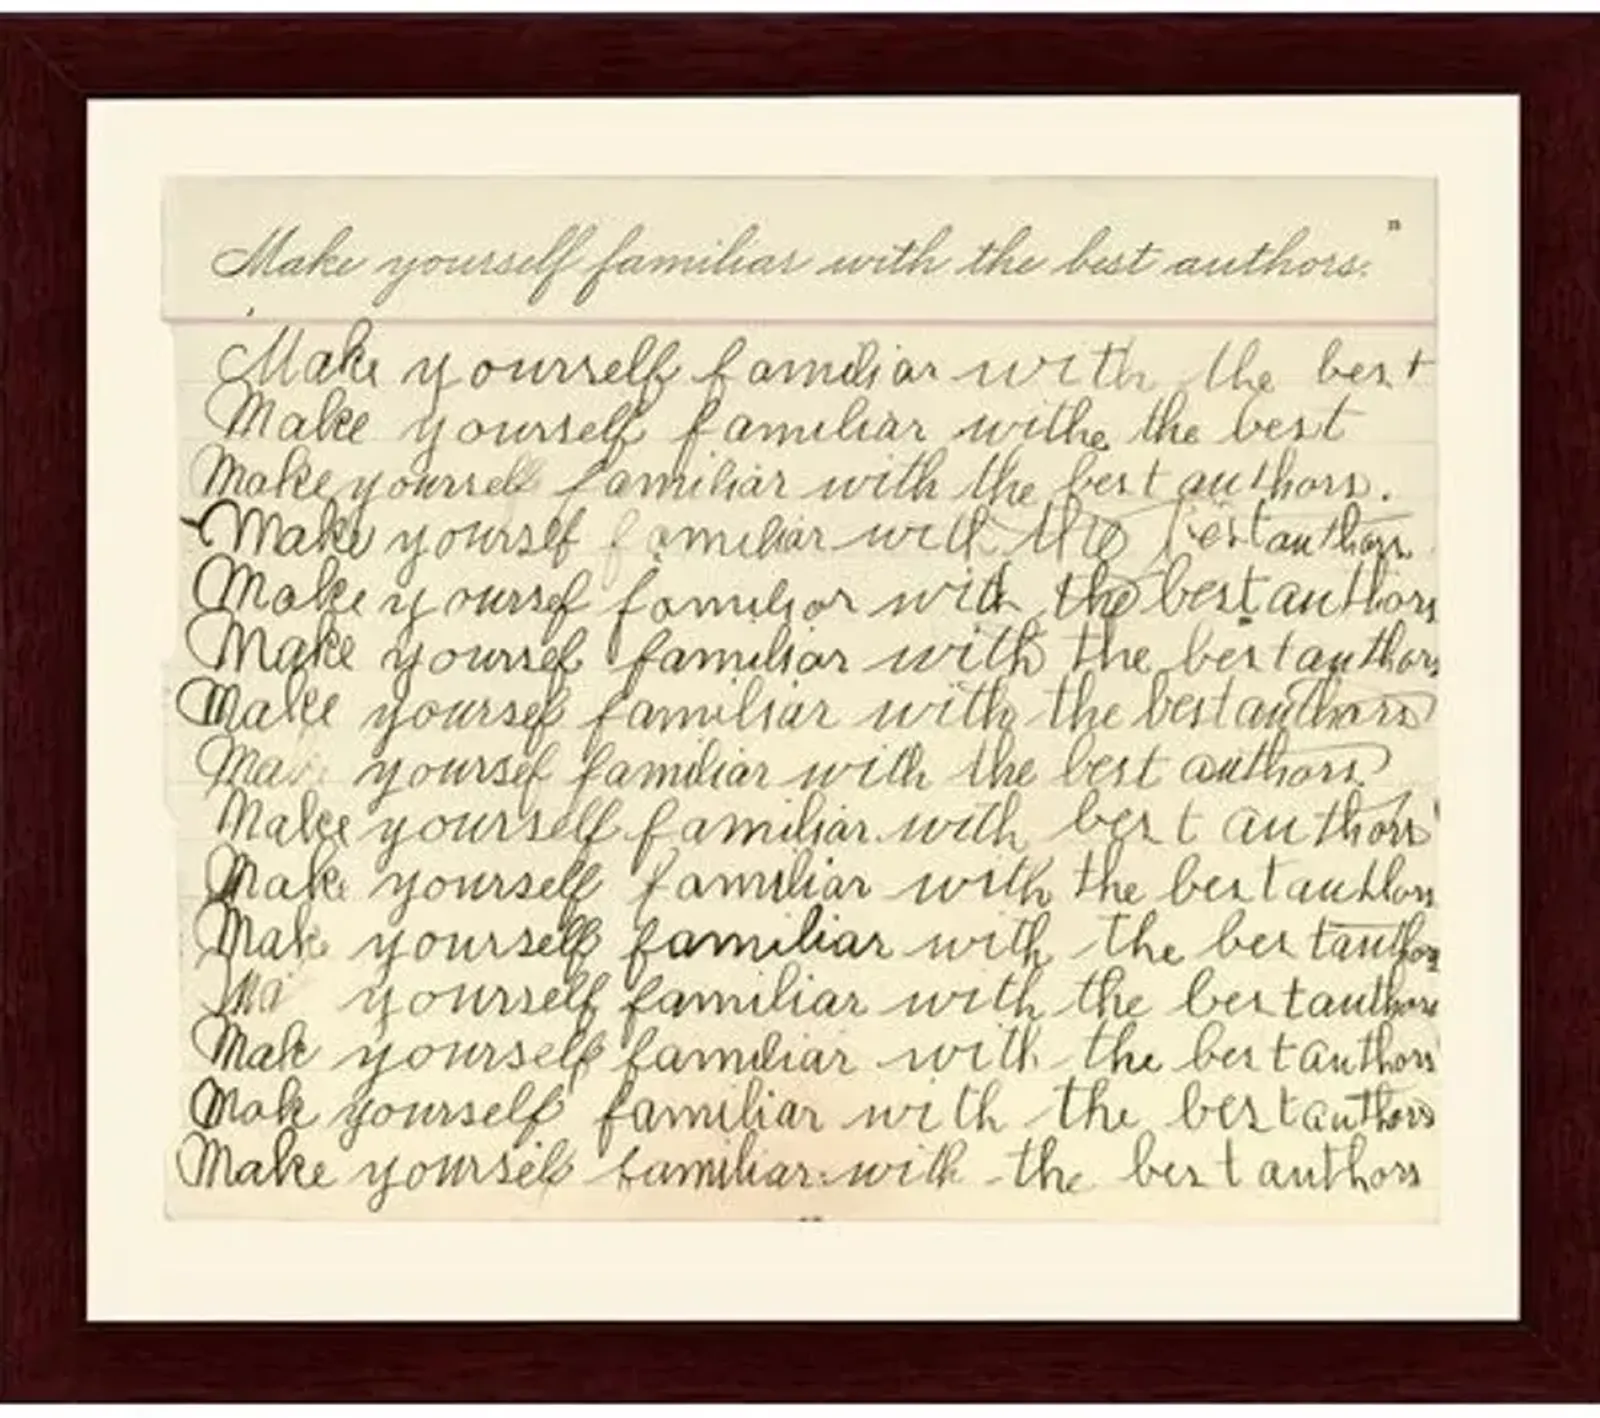 Make yourself familiar with the best authors.
Make yourself familiar with the best
Make yourself familiar withe the best
Make yourself familiar with the best authors.
Make yourslf familiar with the best authors.
Make yoursef familiar with the best authors
Make yoursef familiar with the best authors
Make yoursef familiar with the best authors
Ma yoursef familiar with the best authors.
Make yourself familiar with best authors
Make yourself familiar with the best authors
Mak yourself familiar with the best author
Ma yourself familiar with the best authors
Mak yourself familiar with the best authors
Mak yourself familiar with the best authors
Make yourself familiar with the best authors